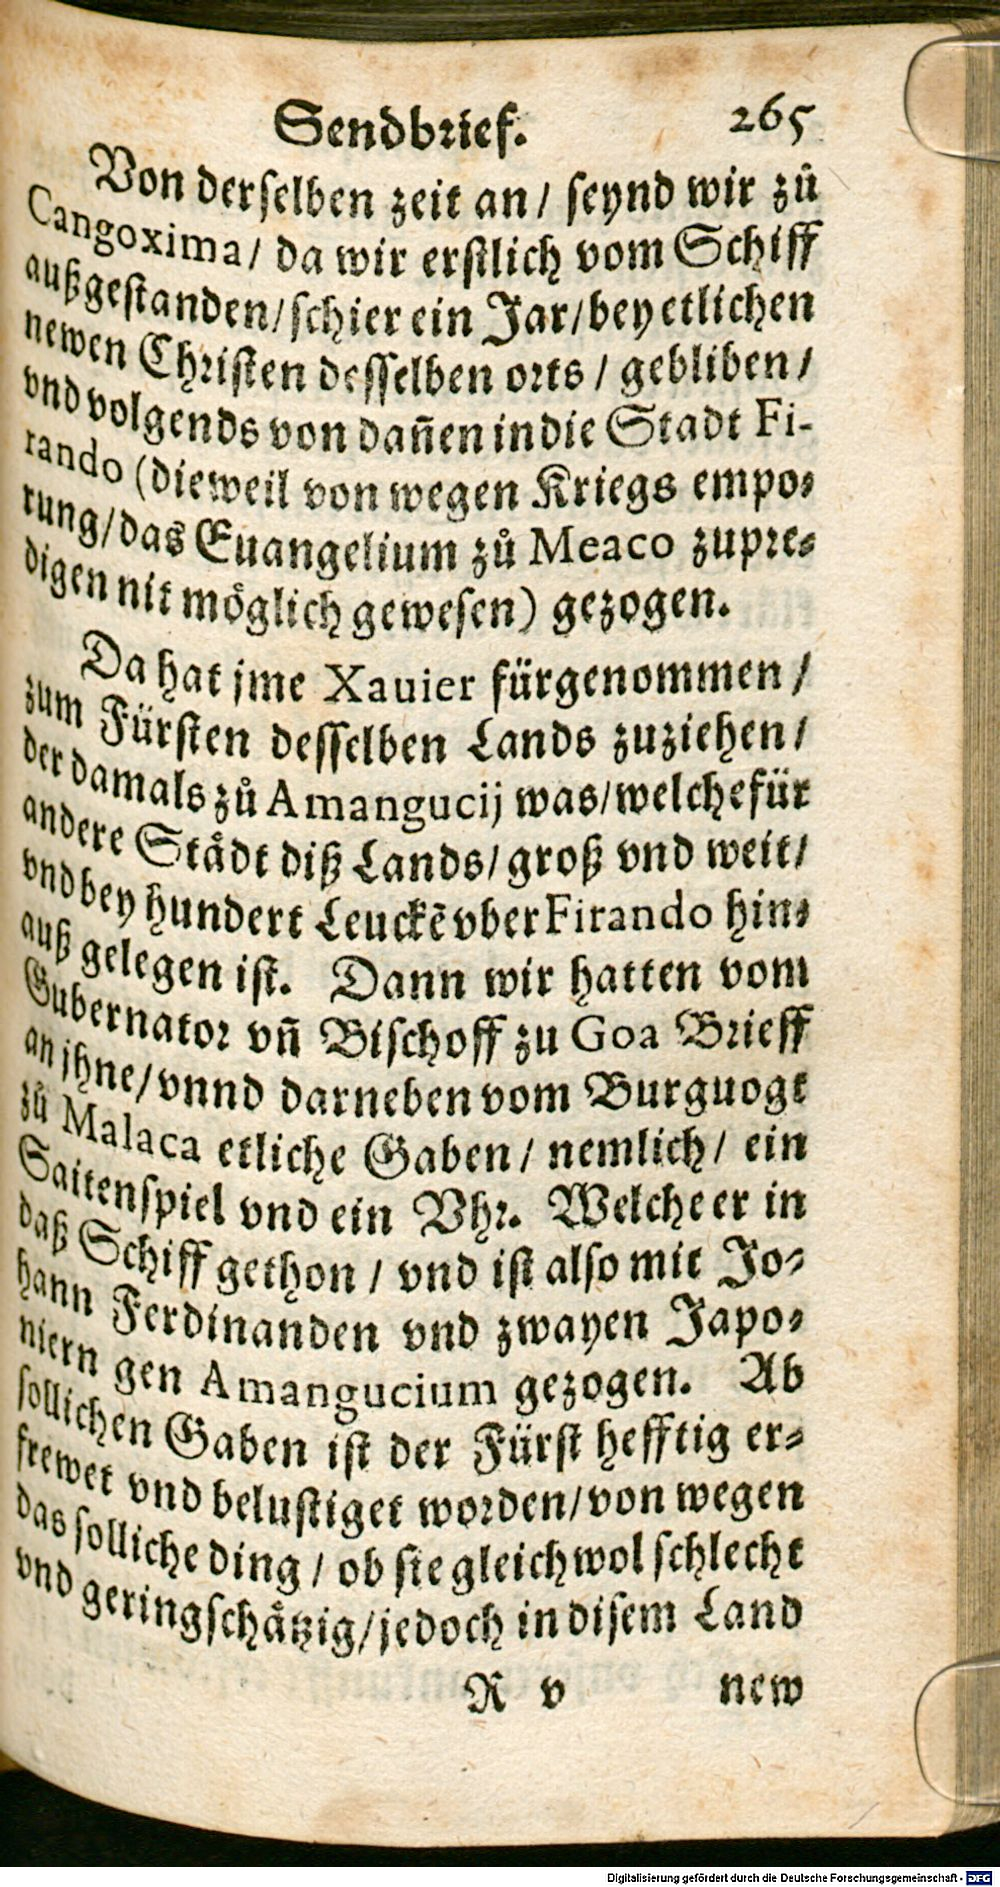 Sendbrief. 265
Von derselben zeit an / seynd wir zů
Cangoxima / da wir erstlich vom Schiff
außgestanden / schier ein Jar / bey etlichen
newen Christen desselben orts / gebliben /
vnd volgends von dañen in die Stadt Fi-
rando (dieweil von wegen Kriegs empo-
rung / das Euangelium zů Meaco zupre-
digen nit möglich gewesen) gezogen.
Da hat jme Xauier fürgenommen /
zum Fürsten desselben Lands zuziehen /
der damals zů Amangucij was / welche für
andere Städt diß Lands / groß vnd weit /
vnd bey hundert Leuckẽ vber Firando hin-
auß gelegen ist. Dann wir hatten vom
Gubernator vñ Bischoff zu Goa Brieff
an jhne / vnnd darneben vom Burguogt
zů Malaca etliche Gaben / nemlich / ein
Saitenspiel vnd ein Vhr. Welche er in
daß Schiff gethon / vnd ist also mit Jo-
hann Ferdinanden vnd zwayen Japo-
niern gen Amangucium gezogen. Ab
sollichen Gaben ist der Fürst hefftig er-
frewet vnd belustiget worden / von wegen
das solliche ding / ob sie gleichwol schlecht
vnd geringschätzig / jedoch in disem Land
R v new
Digitalisierung gefördert durch die Deutsche Forschungsgemeinschaft - DFG